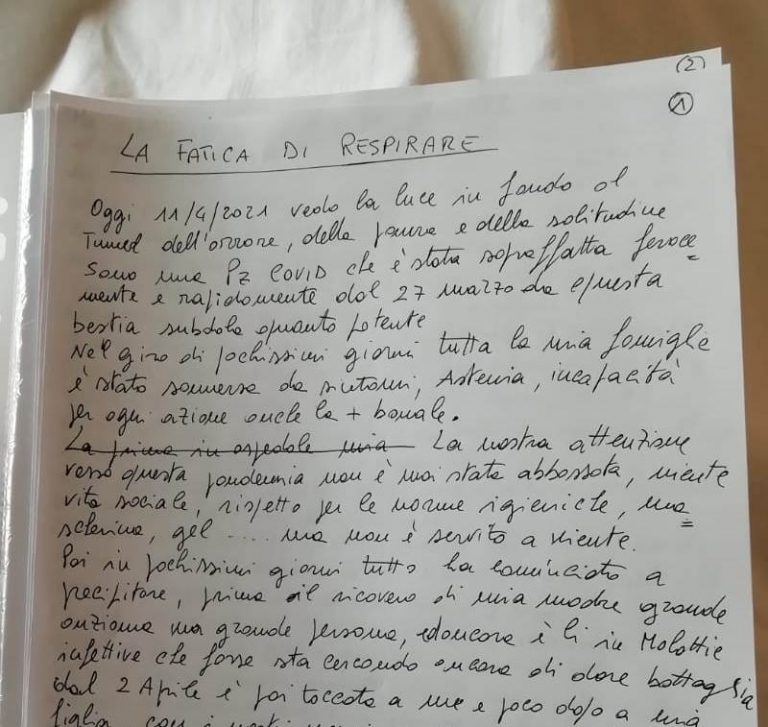 (2)
1
LA FATICA DI RESPIRARE
Oggi 11/4/2021 vedo la luce in fondo al
Tunnel dell'orrore, della paura e della solitudine
Sono una Pz COVID che è stata sopraffatta feroce=
mente e rapidamente dal 27 marzo da questa
bestia subdola quanto potente
Nel giro di pochissimi giorni tutta la mia famiglia
è stata sommersa da sintomi, Astenia, incapacità
per ogni azione anche la + banale.
La prima in ospedale mia La nostra attenzione
verso questa pandemia non è mai stata abbassata, niente
vita sociale, rispetto per le norme igieniche, ma=
scherina, gel .... ma non è servito a niente.
Poi in pochissimi giorni tutto ha cominciato a
precipitare, prima il ricovero di mia madre grande
anziana ma grande persona, ed ancora è lì in Malattie
infettive che forse sta cercando ancora di dare battaglia
dal 2 Aprile è poi toccata a me e poco dopo a mia
figlia con i